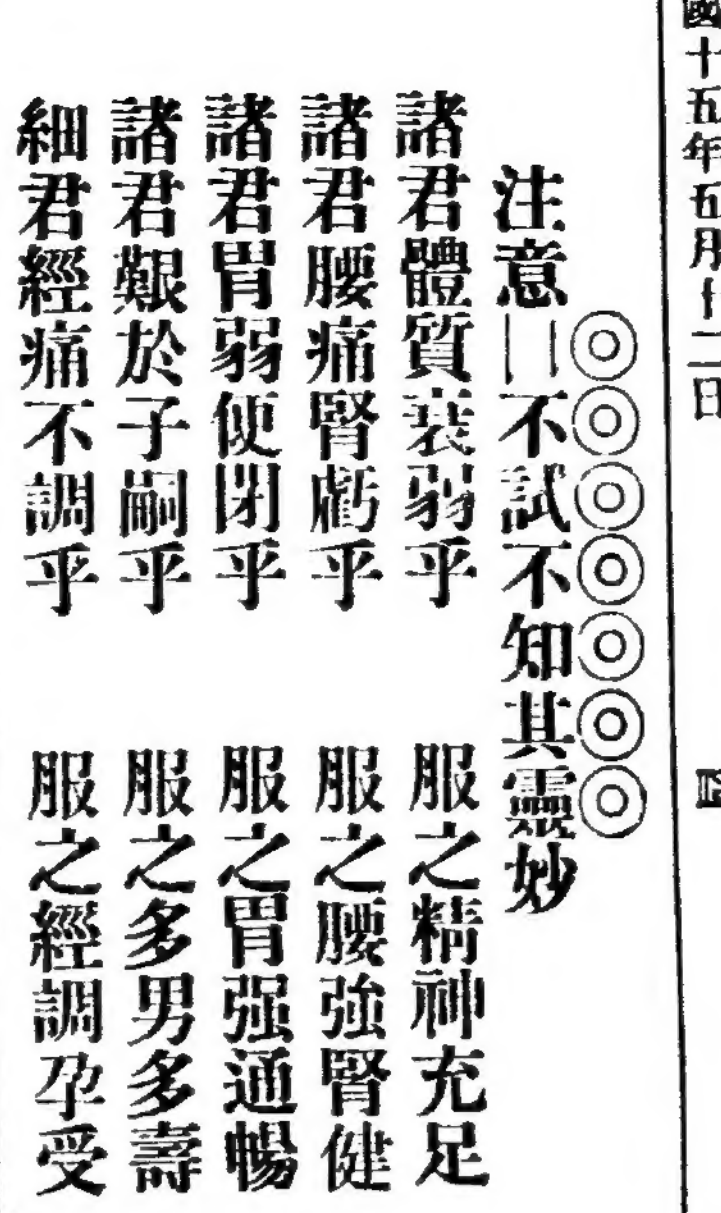 國十五年五月廿二日
◎◎◎◎◎◎◎
注意││不試不知其靈妙
諸君體質衰弱乎　服之精神充足
諸君腰痛腎虧乎　服之腰強腎健
諸君胃弱便閉乎　服之胃强通暢
諸君艱於子嗣乎　服之多男多壽
細君經痛不調乎　服之經調孕受